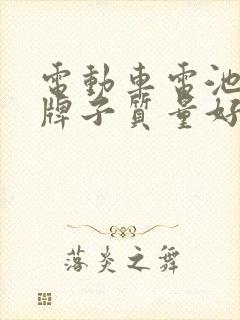 電動車電池
牌子質量好
落炎之舞